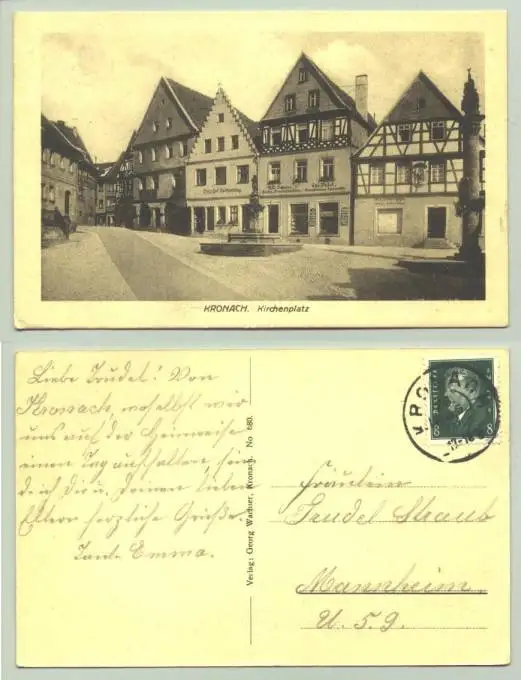 KRONACH. Kirchenplatz
Liebe Trudel! Von
Kronach, woselbst wir
uns auf der Heimreise
einen Tag aufhalten,
dich die u. Deinen lieben
Eltern herzliche Grüße
Tante Emma.
Verlag: Georg Wachter, Kronach. No 680.
KRONACH
8 8
Fräulein
Trudel Straub
Mannheim
U. 5. 9.